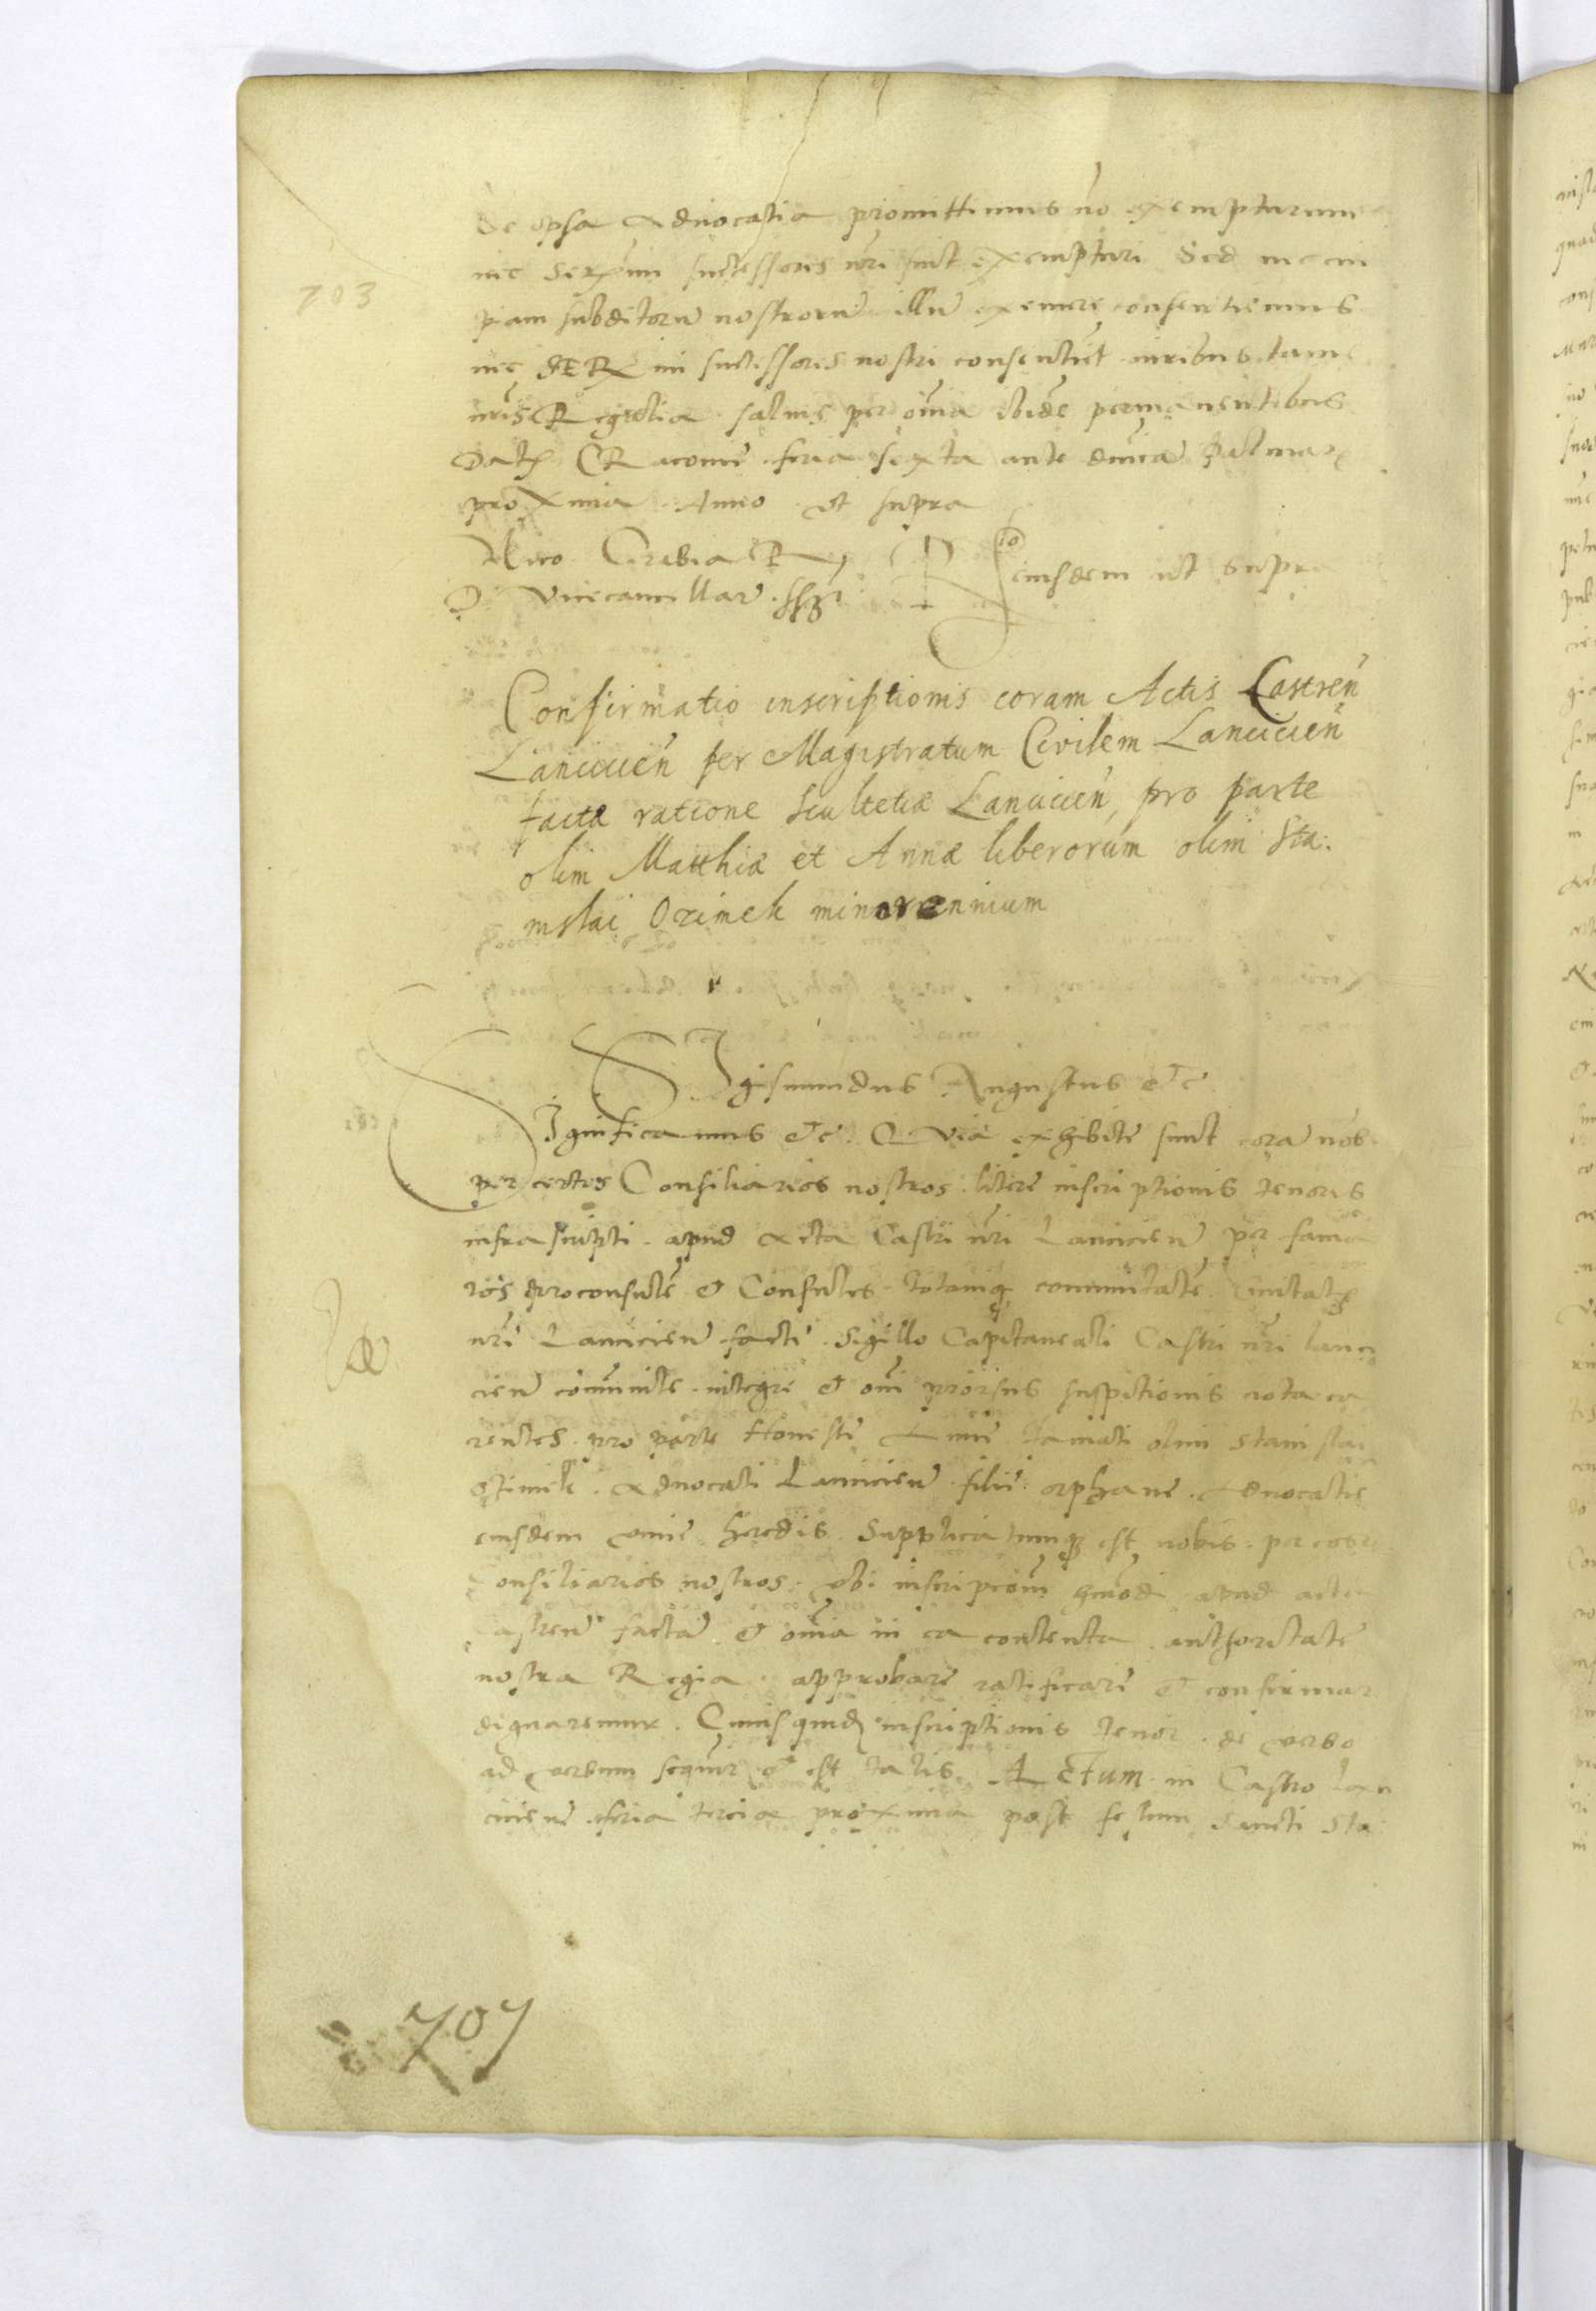 de ipsa Advocatia promittimus no exempturum
nec Sermi successores nri sint exempturi Sed nec cui
piam subditoru nostroru illu eximere consentiemus
nec SERmi successores nostri consentiet iuribus tame
nris Regalia salvis per omia ibide permanentibus
Dat CRacovie feria sexta ante dnica Palmar
proxima Anno ut supra
703
Rlo eiusdem ut supra
D Vicecancellar ssst
Confirmatio inscriptionis coram Actis Castren
Lancicien per Magistratum Civilem Lancicien
factæ ratione Scultetiæ Lancicien, pro parte
olim Matthiæ et Annæ liberorum olim Sta:
nislai Ozimek minorennium
SIgismundus Augustus etc
SIgnificamus etc. Quia exhibite sunt cora nob
per certos Consiliarios nostros litere inscriptionis tenoris
infrascripti apud Acta Castri nri Lancicien per fama
tos proconsule et Consules totamq communitate Civitat
nri Lancicien facti Sigillo Capitaneali Castri nri lanci
cien communite integre et omi prorsus suspitionis nota ca
rentes pro parte Honeste Anne Famati olim Stanislai
Ozimek Advocati Lancicien filie orphane Advocatie
eiusdem unice heredis Supplicatumq est nobis per eosd
Consiliarios nostros ubi inscriptiom hmodi apud acta
Castren facta et omia in ea contenta authoritate
nostra Regia approbare ratificare et confirmar
dignaremur. Cuius quid inscriptionis tenor de verbo
ad verbum sequir et est talis. Actum in Castro lan
cicien feria tercia proxima post festum Sancti Sta
707